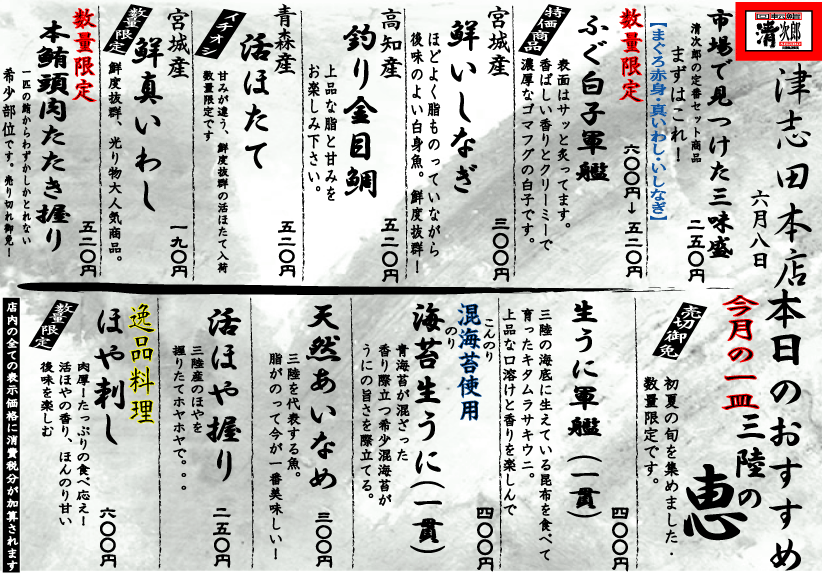 清次郎
津志田本店
六月八日
本日のおすすめ
市場で見つけた三昧盛
清次郎の定番セット商品
まずはこれ！
【まぐろ赤身・真いわし・いしなぎ】
二五〇円
数量限定
ふぐ白子軍艦
六〇〇円→五二〇円
特価商品
表面はサッと炙ってます。
香ばしい香りとクリーミーで
濃厚なゴマフグの白子です。
宮城産
鮮いしなぎ
ほどよく脂ものっていながら
後味のよい白身魚。鮮度抜群！
三〇〇円
高知産
釣り金目鯛
上品な脂と甘みを
お楽しみ下さい。
五二〇円
青森産
活ほたて
イチオシ
甘みが違う、鮮度抜群の活ほたて入荷
数量限定です
五二〇円
宮城産
鮮真いわし
数量限定
鮮度抜群、光り物大人気商品。
一九〇円
数量限定
本鮪頭肉たたき握り
一匹の鮪からわずかしかとれない
希少部位です。売り切れ御免！
五二〇円
今月の一皿
三陸の
恵
売切御免
初夏の旬を集めました・
数量限定です。
生うに軍艦（一貫）
三陸の海底に生えている昆布を食べて
育ったキタムラサキウニ。
上品な口溶けと香りを楽しんで
四〇〇円
混海苔使用
こんのり
海苔生うに（一貫）
のり
青海苔が混ざった
香り際立つ希少混海苔が
うにの旨さを際立てる。
四〇〇円
天然あいなめ
三陸を代表する魚。
脂がのって今が一番美味しい！
三〇〇円
活ほや握り
三陸産のほやを
握りたてホヤホヤで。。。
二五〇円
逸品料理
ほや刺し
数量限定
肉厚！たっぷりの食べ応え！
活ほやの香り、ほんのり甘い
後味を楽しむ
六〇〇円
店内の全ての表示価格に消費税分が加算されます